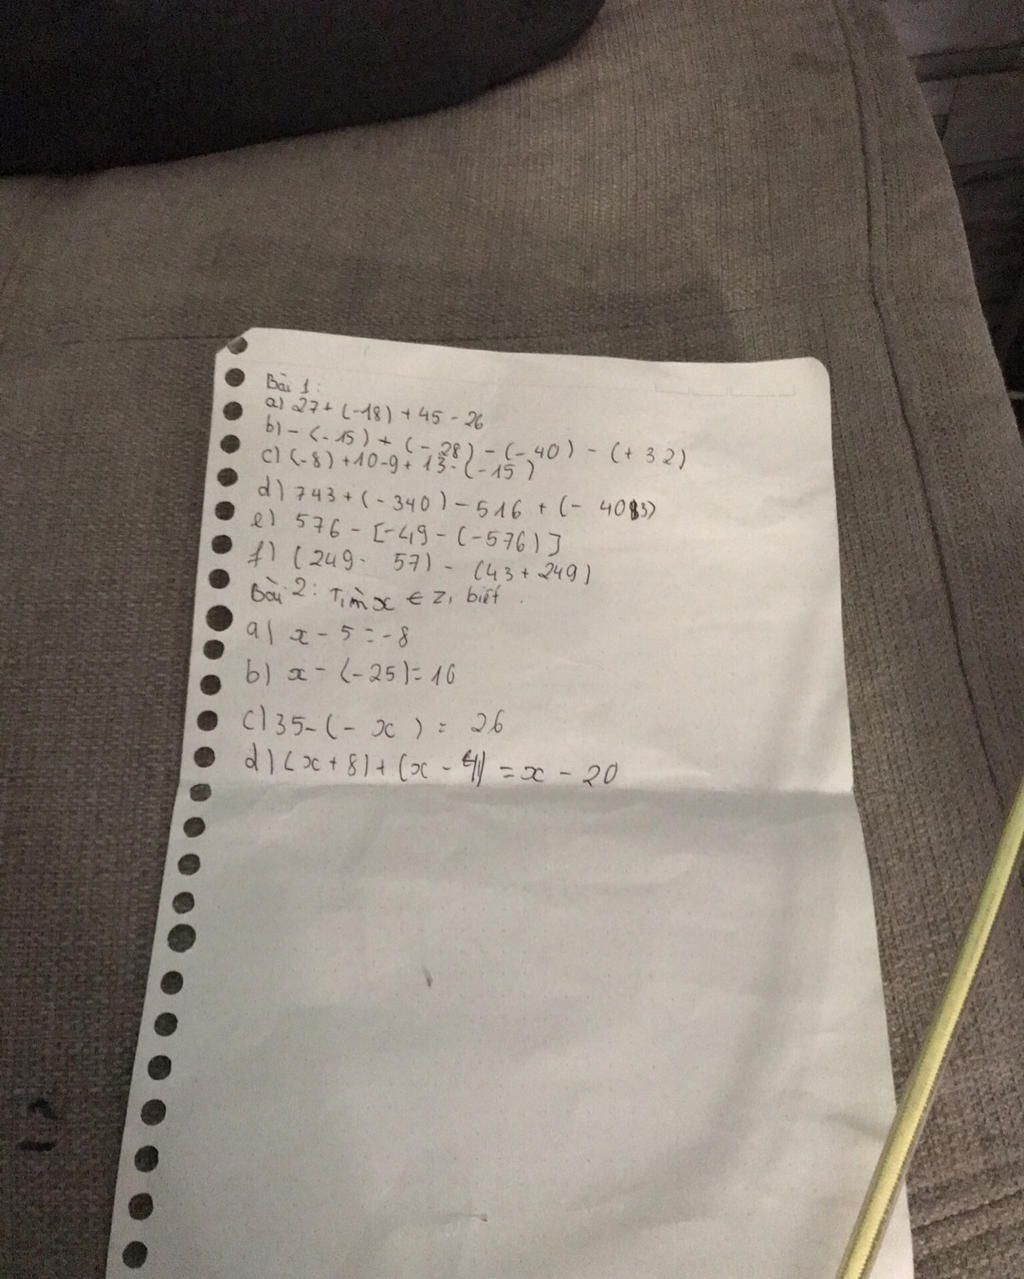 Bài 1:
a) 27 + (-18) + 45 - 26
b) - (-15) + (- 28) - (- 40) - (+ 32)
c) (-8) + 10 - 9 + 13 - (-15)
d) 743 + (- 340) - 516 + (-
e) 576 - [-49 - (-576)]
f) (249 - 57) - (43 + 249)
Bài 2: Tìm x ∈ Z, biết.
a) x - 5 = -8
b) x - (-25) = 16
c) 35 - (- x ) = 26
d) (x + 8) + (x - 4) = x - 20